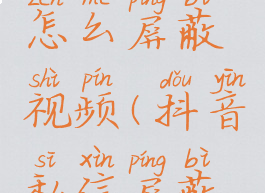 zěn me píng bì
怎么屏蔽
shì pín dǒu yīn
视频(抖音
sī xìn píng bì
私信屏蔽